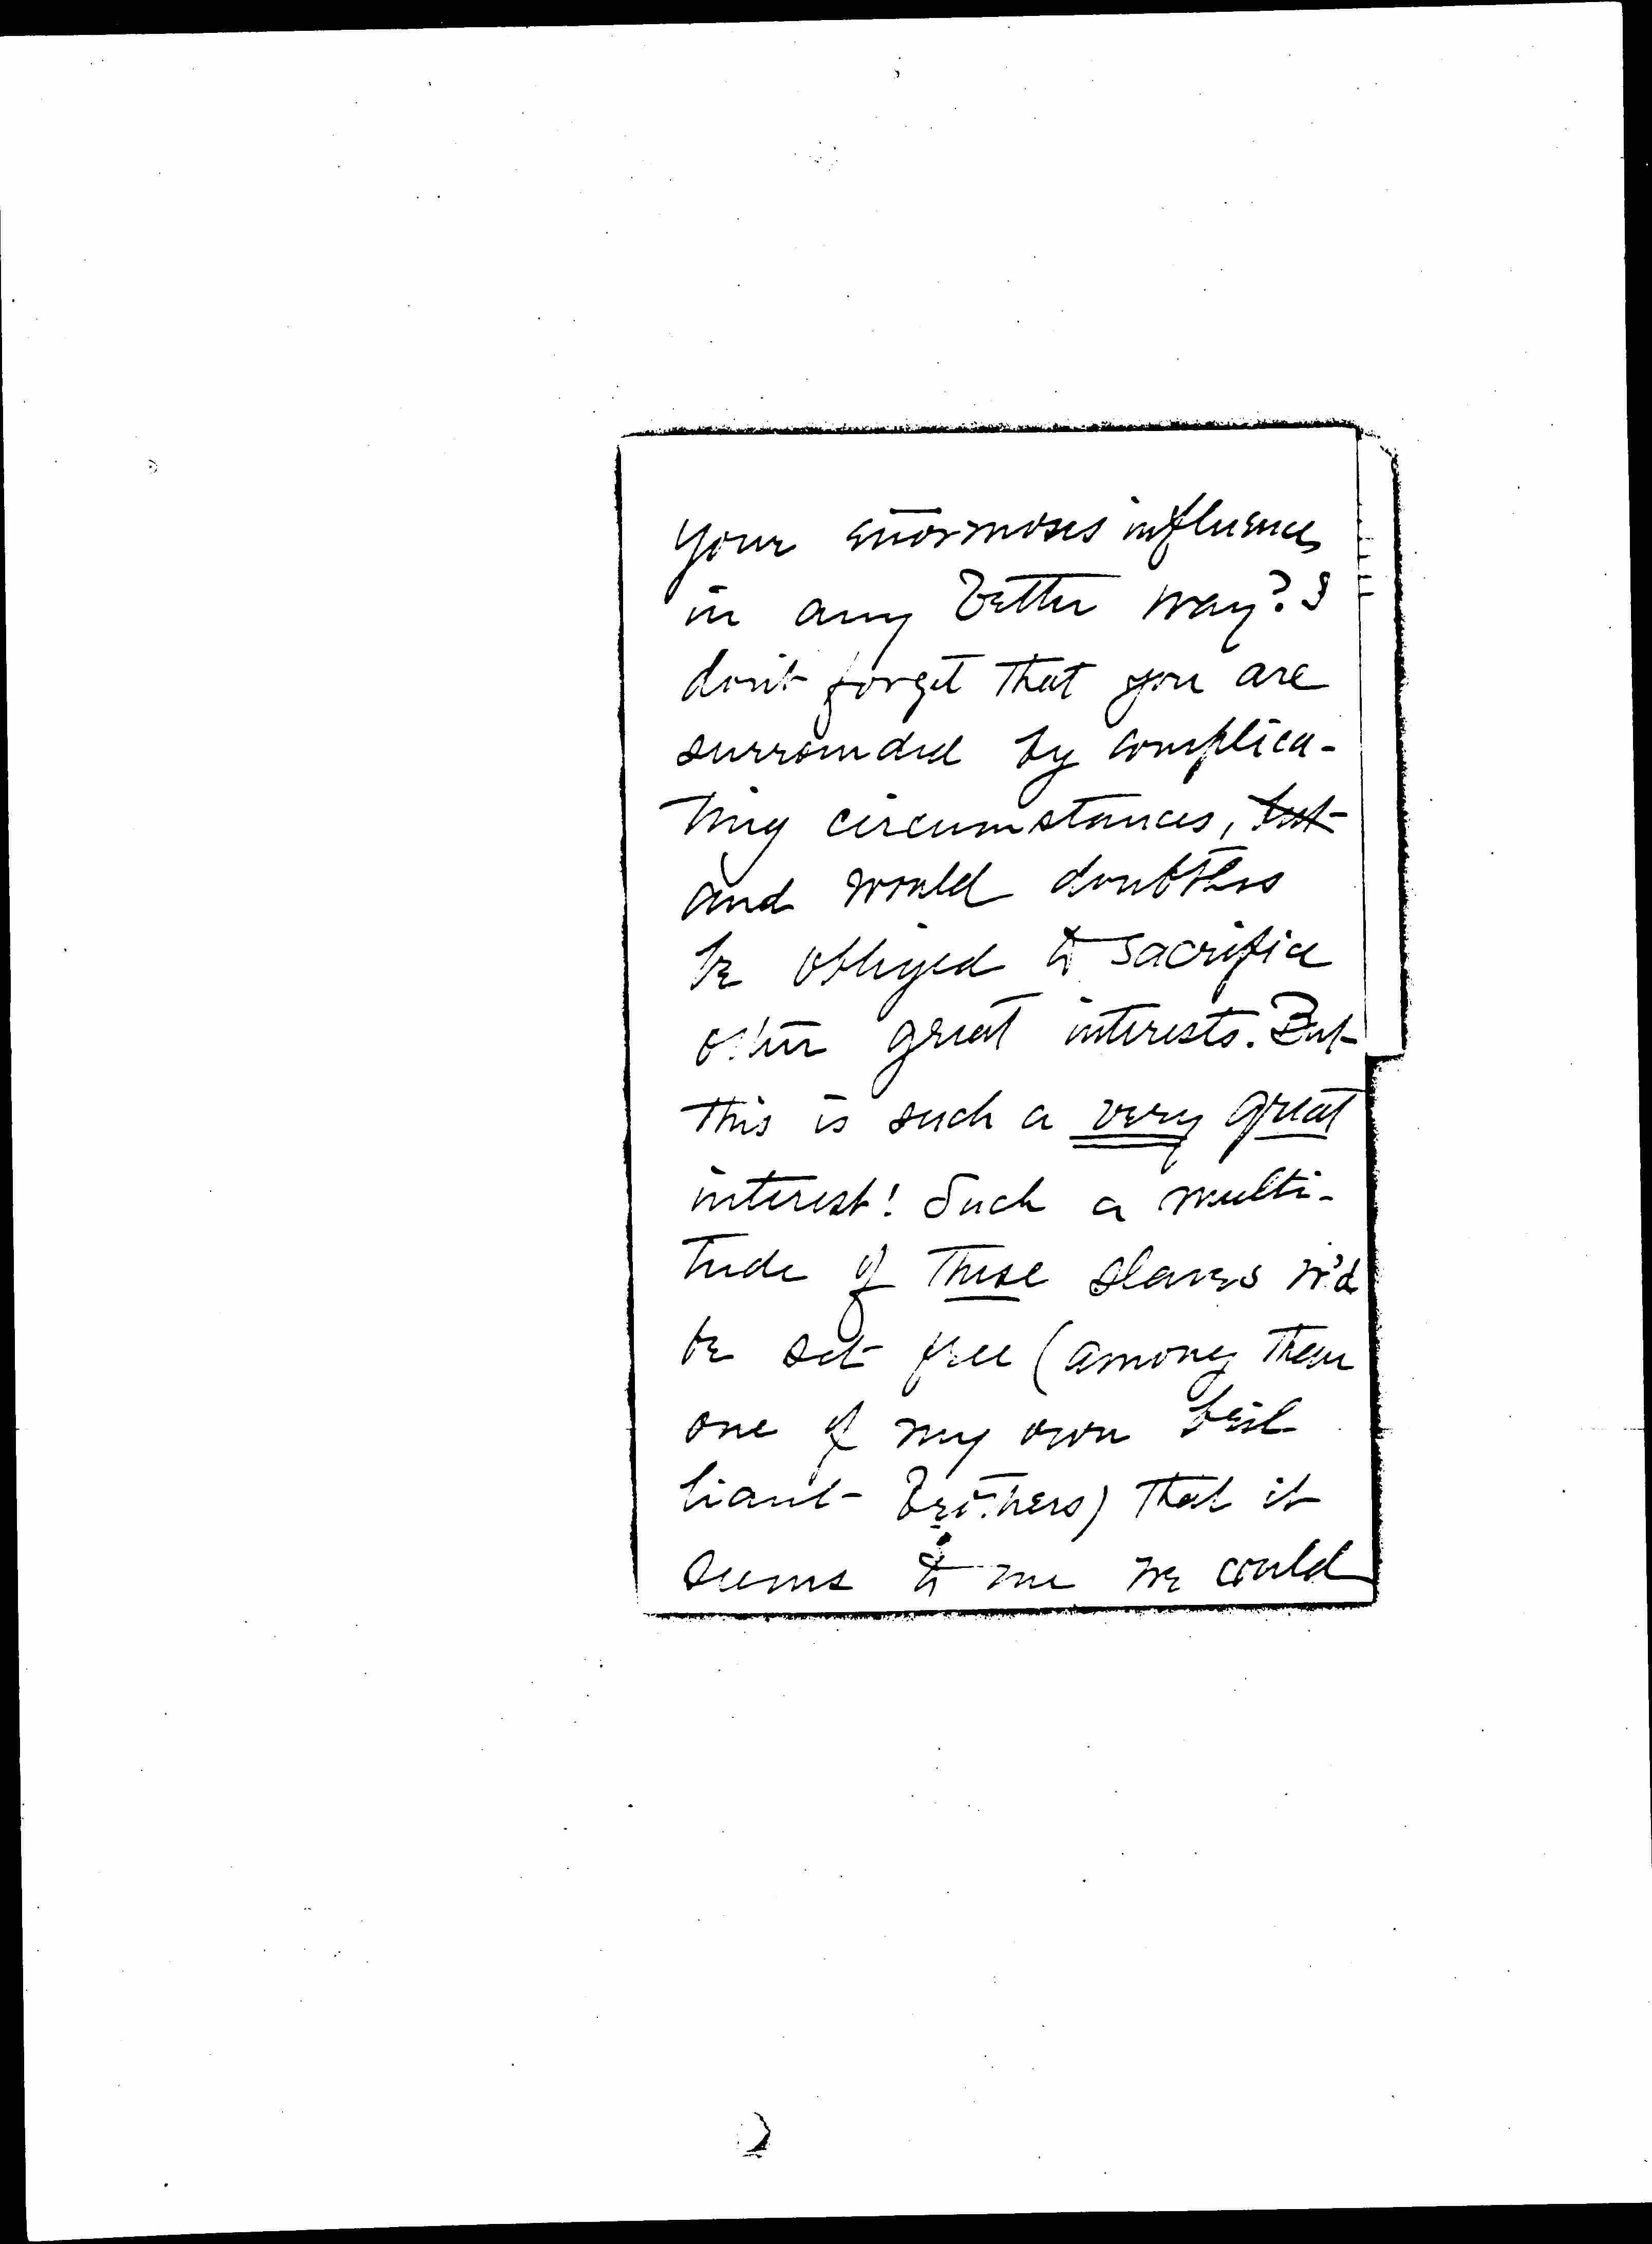 your enormous influence
in any better way? I
don't forget that you are
surrounded by complica-
ting circumstances, but
and would doubtless
be obliged to sacrifice
other great interests. But
this is such a very great
interest! Such a multi-
tude of these slaves w'd
be set free (among them
one of my own bril
liant brothers) that it
seems to me we could